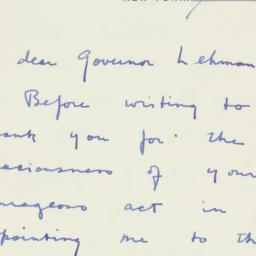 dear Governor Lehman
Before writing to
ank you for the
aciousness of your
urageous act in
pointing me to th